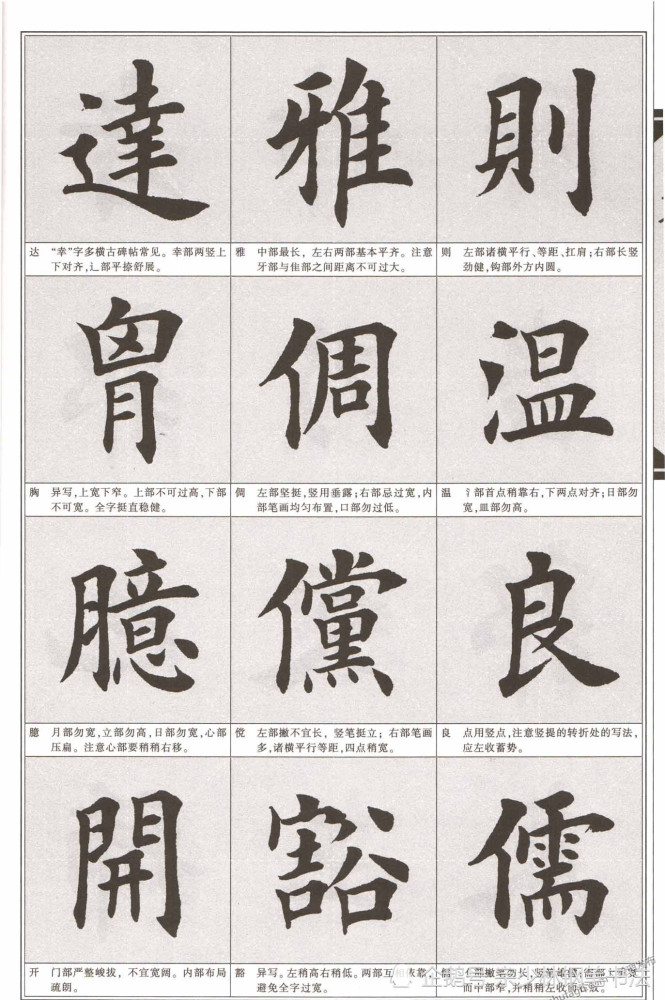 達 雅 則
达 “幸”字多横古碑帖常见。幸部两竖上
下对齐,辶部平捺舒展。
雅 中部最长，左右两部基本平齐。注意
牙部与隹部之间距离不可过大。
则 左部诸横平行、等距、扛肩;右部长竖
劲健,钩部外方内圆。
胷 倜 温
胸 异写,上宽下窄。上部不可过高,下部
不可宽。全字挺直稳健。
倜 左部坚挺,竖用垂露;右部忌过宽,内
部笔画均匀布置,口部勿过低。
温 氵部首点稍靠右,下两点对齐;日部勿
宽,皿部勿高。
臆 儻 良
臆 月部勿宽,立部勿高,日部勿宽,心部
压扁。注意心部要稍稍右移。
傥 左部撇不宜长，竖笔挺立；右部笔画
多,诸横平行等距,四点稍宽。
良 点用竖点,注意竖提的转折处的写法,
应左收蓄势。
開 豁 儒
开 门部严整峻拔，不宜宽阔。内部布局
疏朗。
豁 异写。左稍高右稍低。两部互相依靠,
避免全字过宽。
而中部窄,并稍稍左收